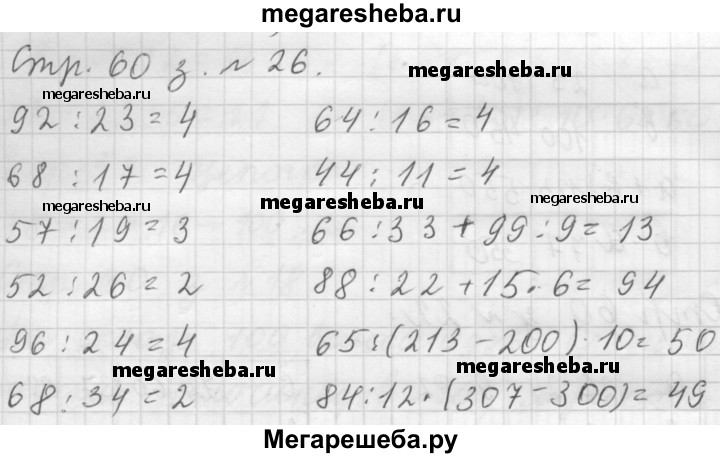 megaresheba.ru
Стр. 60 з. № 26.
megaresheba.ru
megaresheba.ru
92 : 23 = 4
64 : 16 = 4
68 : 17 = 4
44 : 11 = 4
megaresheba.ru
megaresheba.ru
megaresheba.ru
57 : 19 = 3
66 : 33 + 99 : 9 = 13
52 : 26 = 2
88 : 22 + 15 · 6 = 94
96 : 24 = 4
65 : (213 - 200) · 10 = 50
megaresheba.ru
megaresheba.ru
68 : 34 = 2
84 : 12 · (307 - 300) = 49
Мегарешеба.ру